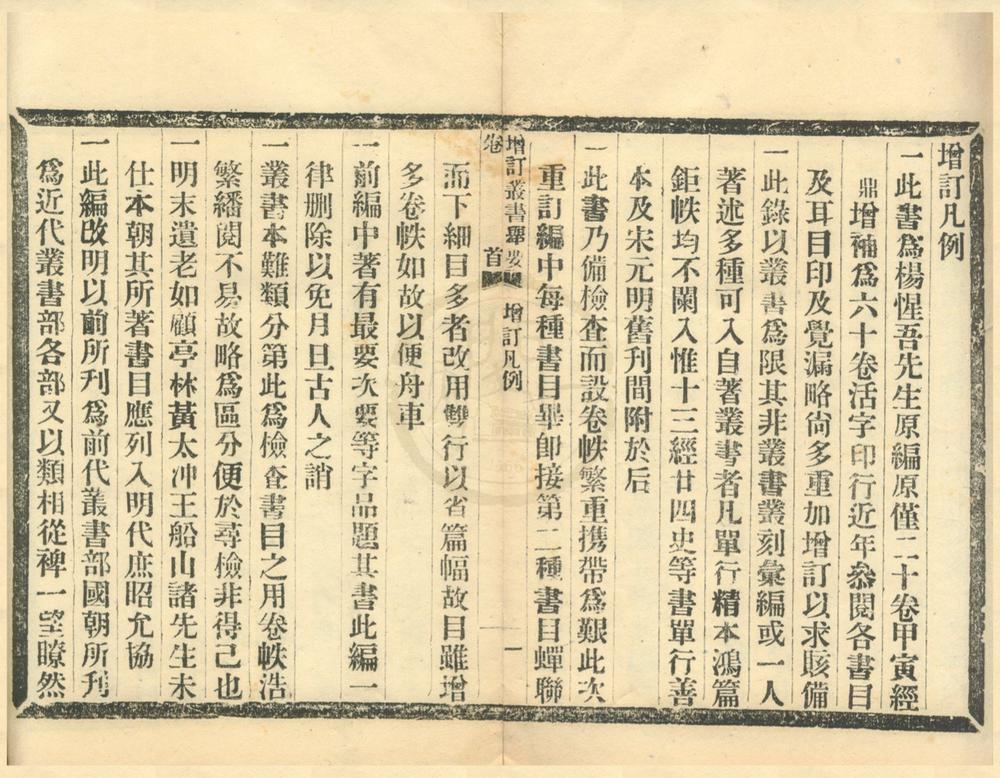 增訂凡例
一此書爲楊惺吾先生原編原僅二十卷甲寅經
鼎增補爲六十卷活字印行近年叅閱各書目
及耳目印及覺漏略尙多重加增訂以求賅備
一此錄以叢書爲限其非叢書叢刻彙編或一人
著述多種可入自著叢書者凡單行精本鴻篇
鉅帙均不闌入惟十三經廿四史等書單行善
本及宋元明舊刊間附於后
一此書乃備檢查而設卷帙繁重携帶爲艱此次
重訂編中每種書目畢卽接第二種書目蟬聯
增訂叢書舉要
卷首
增訂凡例
一
而下細目多者改用雙行以省篇幅故目雖增
多卷帙如故以便舟車
一前編中著有最要次要等字品題其書此編一
律删除以免月旦古人之誚
一叢書本難類分第此爲檢查書目之用卷帙浩
繁繙閱不易故略爲區分便於尋檢非得己也
一明末遺老如顧亭林黃太冲王船山諸先生未
仕本朝其所著書目應列入明代庶昭允協
一此編改明以前所刊爲前代叢書部國朝所刋
爲近代叢書部各部又以類相從裨一望瞭然